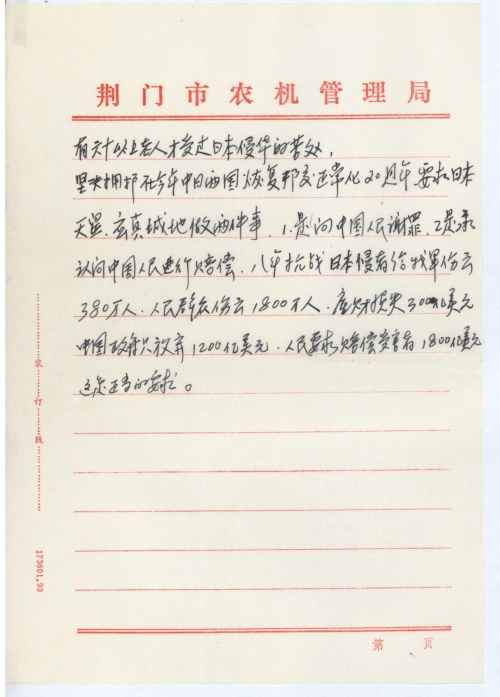 荆门市农机管理局
有六十以上老人才受过日本侵华的苦处，
坚决拥护在今年中日两国恢复邦交正常化20周年要求日本
天皇．真诚地做两件事．1.是向中国人民谢罪．2是承
认向中国人民进行赔偿．八年抗战日本侵者给我军伤亡
380万人．人民群众伤亡1800万人．财损失3000亿美元
中国政府只放弃1200亿美元．人民要求赔偿受害者1800亿美元
这是正当的要求。
装订线
173601.90
第 页